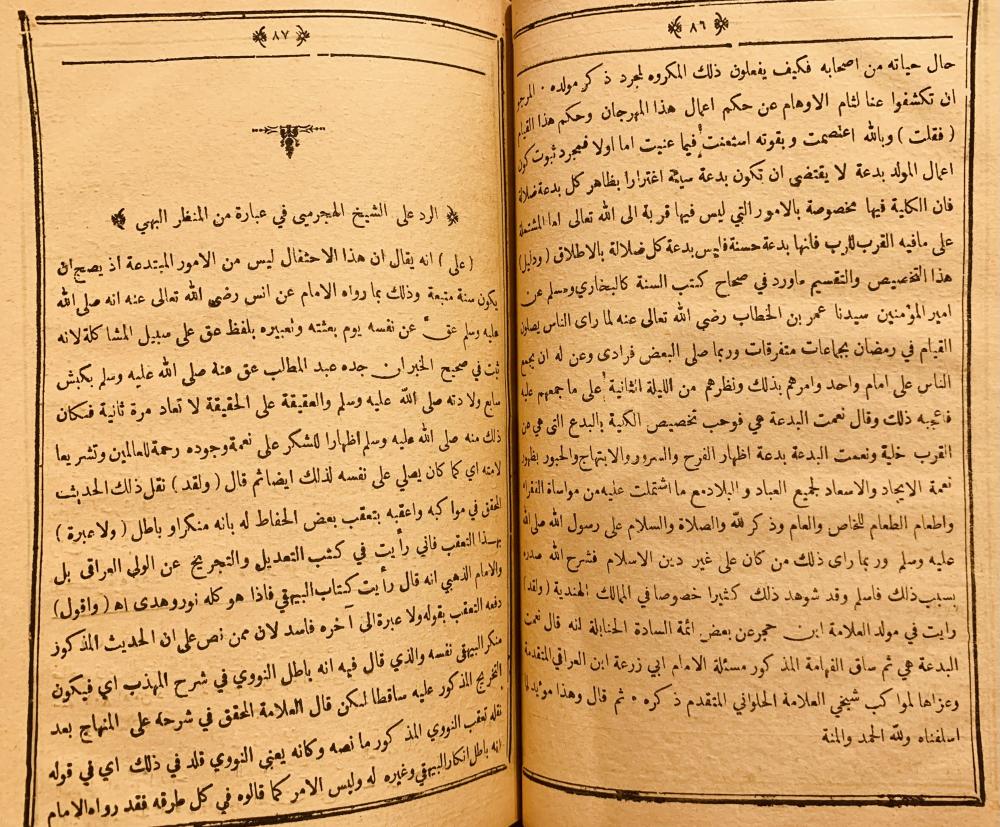 ٨٦
حال حياته من اصحابه فكيف يفعلون ذلك المكروه لمجرد ذكر مولده ٠ المرجو
ان تكشفوا عنا لثام الاوهام عن حكم اعمال هذا المهرجان وحكم هذا القيام
( فقلت ) وبالله اعتصمت وبقوته استعنت فيما عنيت اما اولا فمجرد ثبوت كون
اعمال المولد بدعة لا يقتضي ان تكون بدعة سيئة اغترارا بظاهر كل بدعة ضلالة
فان الكلية فيها مخصوصة بالامور التي ليس فيها قربة الى الله تعالى اما المشتملة
على مافيه القرب للرب فانها بدعة حسنة فليس بدعة كل ضلالة بالاطلاق ( ودليل )
هذا التخصيص والتقسيم ماورد في صحاح كتب السنة كالبخاري ومسلم عن
امير المؤمنين سيدنا عمر بن الخطاب رضي الله تعالى عنه لما راى الناس يصلون
القيام في رمضان بجماعات متفرقات وربما صلى البعض فرادى وعن له ان يجمع
الناس على امام واحد وامرهم بذلك ونظرهم من الليلة الثانية على ما جمعهم عليه
فاعجبه ذلك وقال نعمت البدعة هي فوجب تخصيص الكلية بالبدع التي هي عن
القرب خلية ونعمت البدعة بدعة اظهار الفرح والسرور والابتهاج والحبور بظهور
نعمة الايجاد والاسعاد لجميع العباد والبلاد مع ما اشتملت عليه من مواساة الفقراء
واطعام الطعام للخاص والعام وذكر لله والصلاة والسلام على رسول الله صلى الله
عليه وسلم وربما راى ذلك من كان على غير دين الاسلام فشرح الله صدره
بسبب ذلك فاسلم وقد شوهد ذلك كثيرا خصوصا في الممالك الهندية ( ولقد )
رايت في مولد العلامة ابن حجر عن بعض ائمة السادة الحنابلة انه قال نعمت
البدعة هي ثم ساق الفهامة المذكور مسئلة الامام ابي زرعة ابن العراقي المتقدمة
وعزاها لمواكب شيخي العلامة الحلواني المتقدم ذكره ٠ ثم قال وهذا مؤيد لما
اسلفناه ولله الحمد والمنة
٨٧
الرد على الشيخ الهجرسي في عبارة من المنظر البهي
( على ) انه يقال ان هذا الاحتفال ليس من الامور المبتدعة اذ يصح ان
يكون سنة متبعة وذلك بما رواه الامام عن انس رضي الله تعالى عنه انه صلى الله
عليه وسلم عق عن نفسه يوم بعثته وتعبيره بلفظ عق على سبيل المشاكلة لانه
ثبت في صحيح الخبر ان جده عبد المطالب عق عنه صلى الله عليه وسلم بكبش
سابع ولادته صلى الله عليه وسلم والعقيقة على الحقيقة لا تعاد مرة ثانية فكان
ذلك منه صلى الله عليه وسلم اظهارا للشكر على نعمة وجوده رحمة للعالمين وتشريعا
لامته اي كما كان يصلي على نفسه لذلك ايضا ثم قال ( ولقد ) نقل ذلك الحديث
المحقق في مواكبه واعقبه بتعقب بعض الحفاظ له بانه منكر او باطل ( ولا عبرة )
بهذا التعقب فاني رأيت في كتب التعديل والتجريح عن الولي العراقي بل
والامام الذهبي انه قال رأيت كتاب البيهقي فاذا هو كله نور وهدى اه ( واقول )
دفعه التعقب بقوله ولا عبرة الى آخره فاسد لان ممن نص على ان الحديث المذكور
منكر البيهقي نفسه والذي قال فيه انه باطل النووي في شرح المهذب اي فيكون
التخريج المذكور عليه ساقطا لكن قال العلامة المحقق في شرحه على المنهاج بعد
نقله تعقب النووي المذكور ما نصه وكانه يعني النووي قلد في ذلك اي في قوله
انه باطل انكار البيهقي وغيره له وليس الامر كما قالوه في كل طرقه فقد رواه الامام